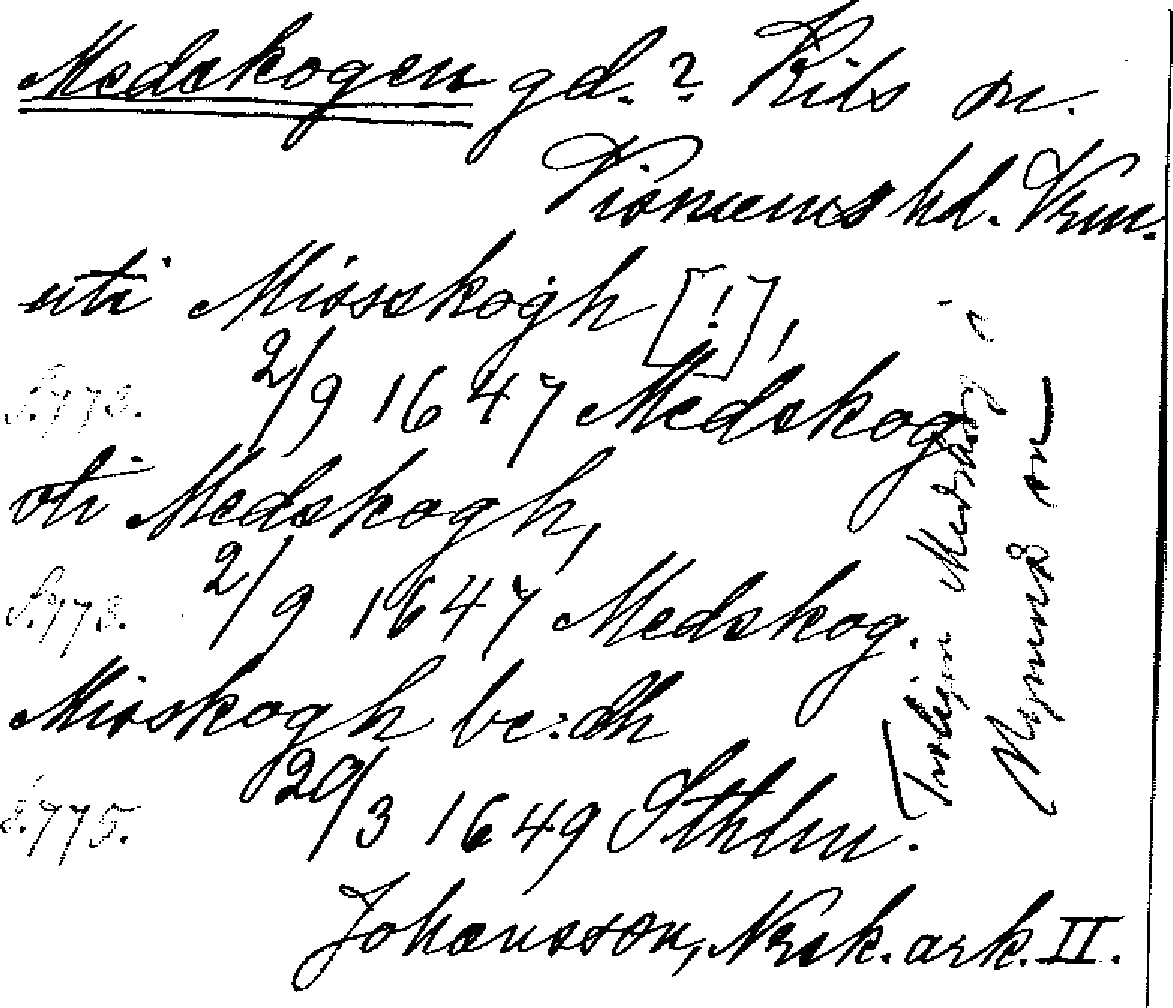 Medskogen gd.? Kils sn.
Visnums hd. Vrm.
uti Missskogh [!],
S.773. 2/9 1647 Medskog
oti Medskogh,
S.773. 2/9 1647 Medskog.
Misskogh be:dh
S.775. 20/3 1649 Sthlm.
Johansson, Norsk. ark. II.
Troligen i
sn